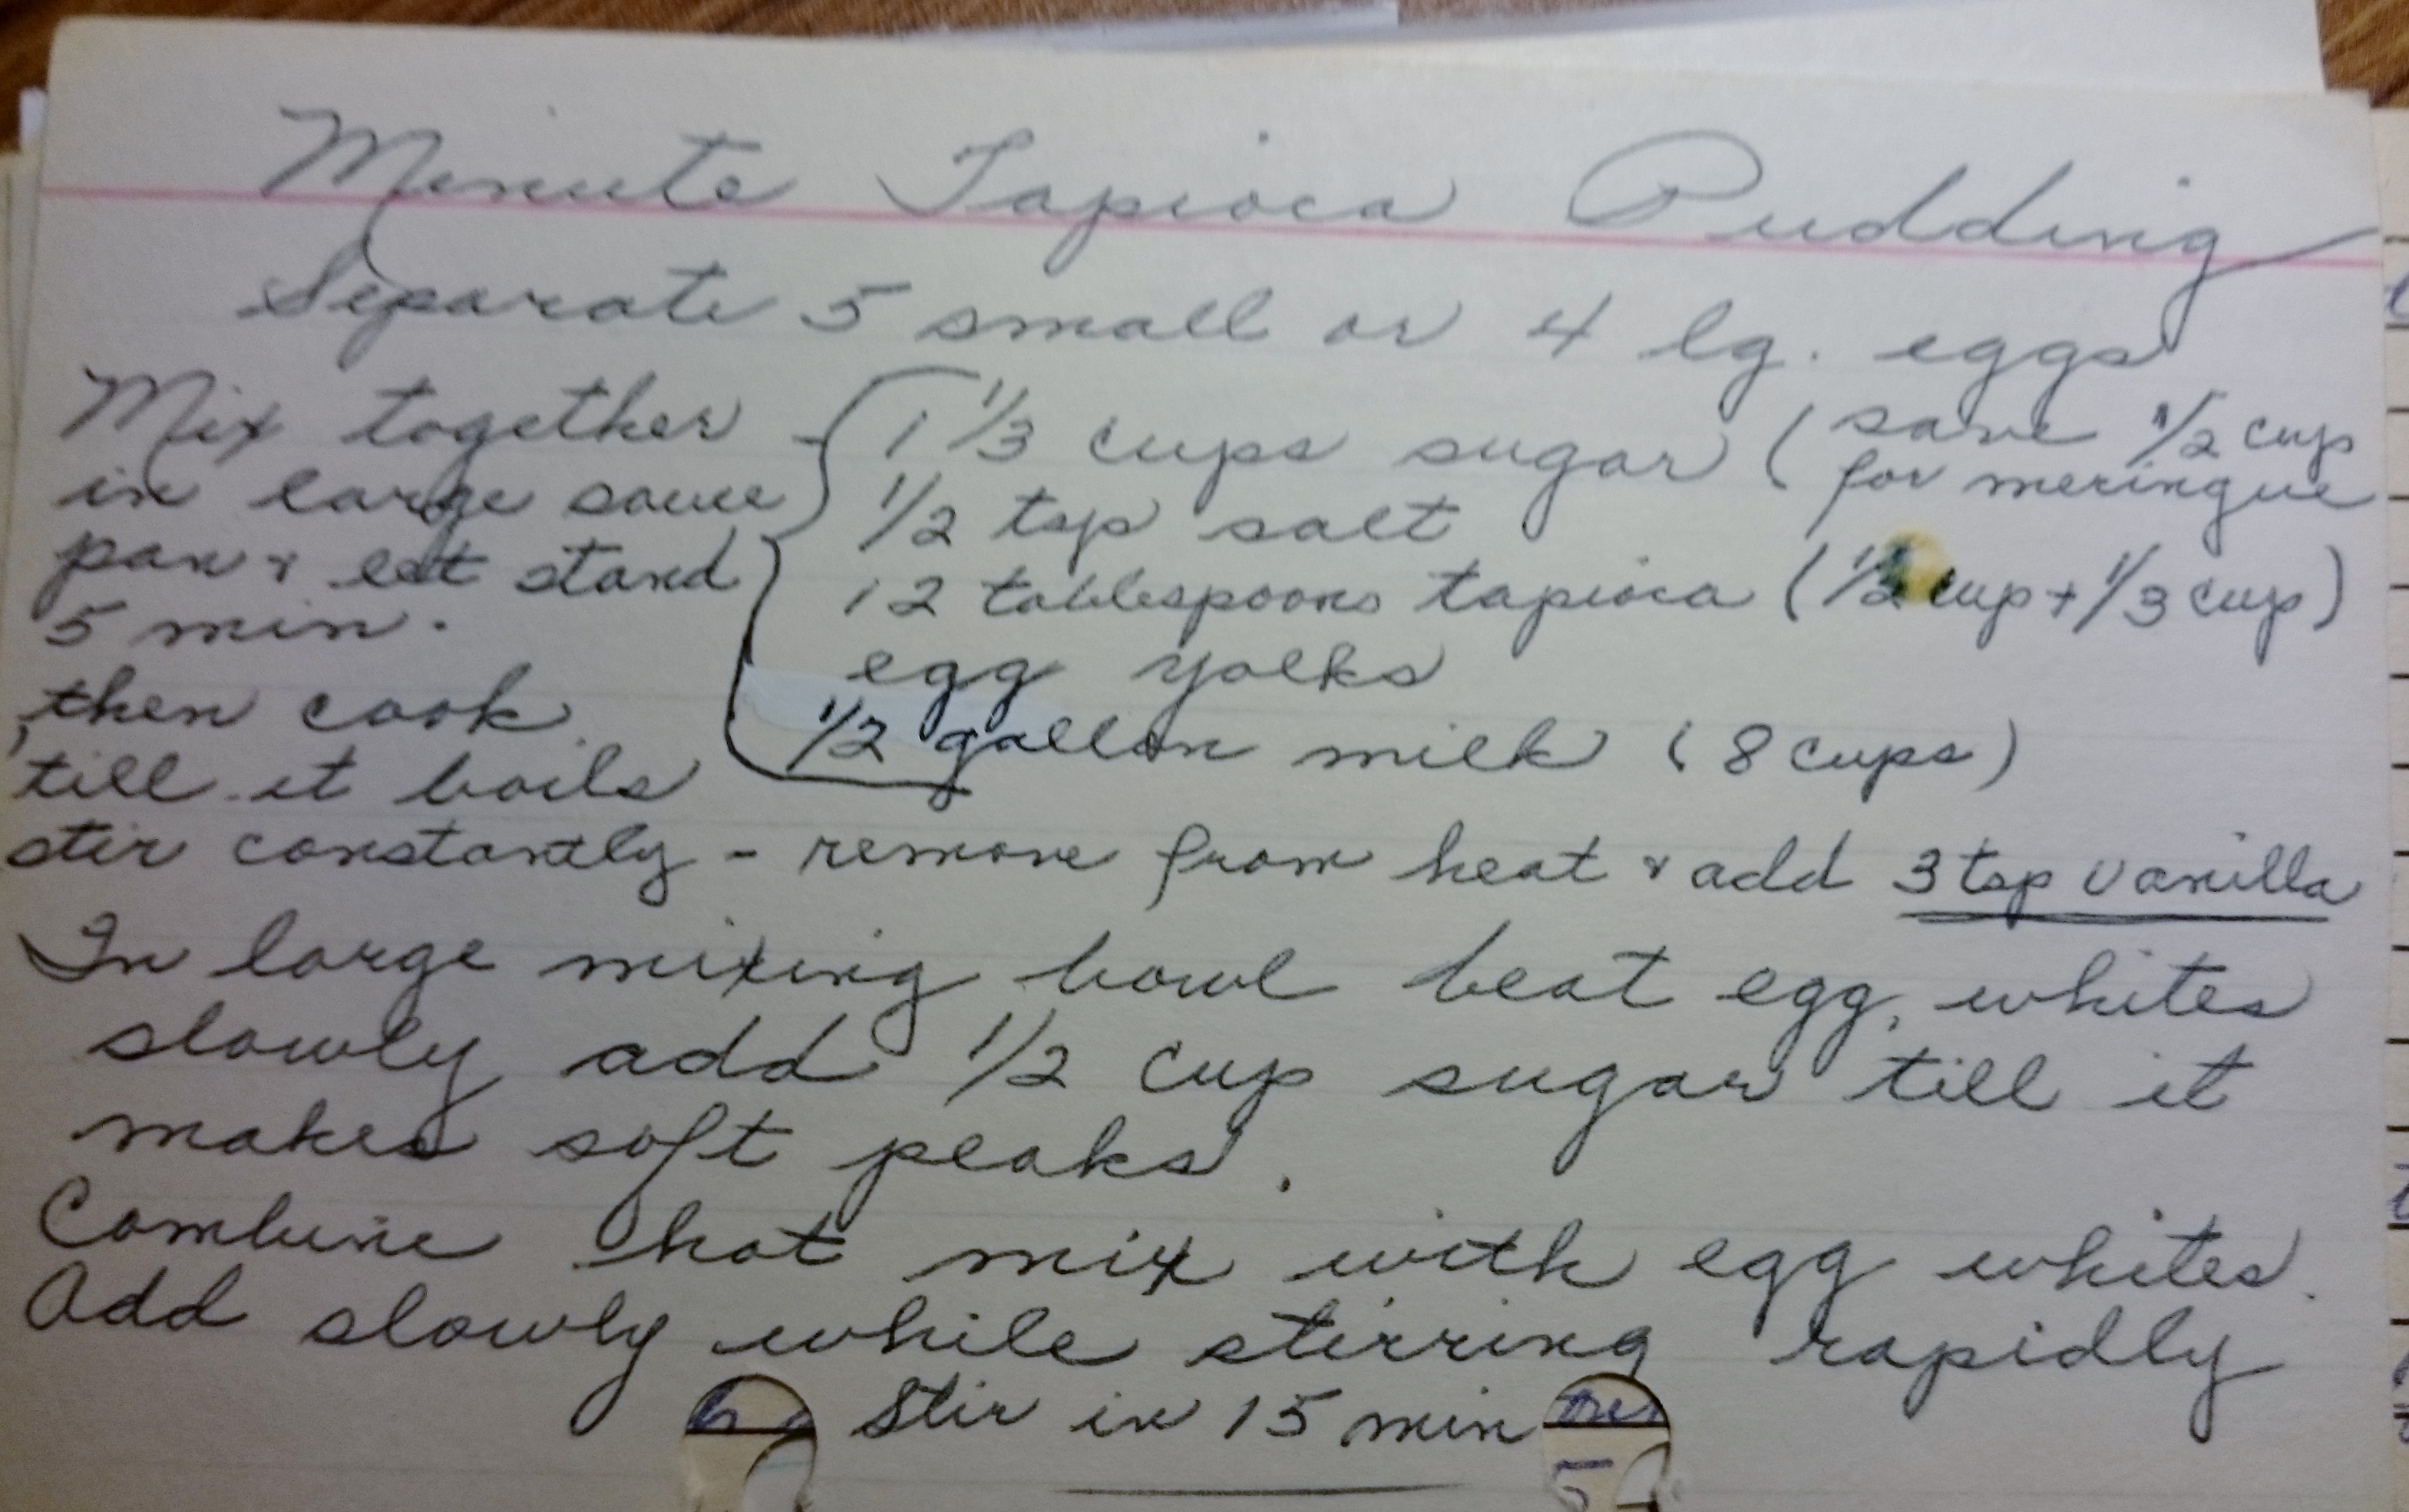 Minute Tapioca Pudding
Separate 5 small or 4 lg. eggs
Mix together
in large sauce
pan & let stand
5 min.
then cook
till it boils
1 1/3 cups sugar (save 1/2 cup
for meringue
1/2 tsp salt
12 tablespoons tapioca (1/2 cup + 1/3 cup)
egg yolks
1/2 gallon milk (8 cups)
stir constantly - remove from heat & add 3 tsp vanilla
In large mixing bowl beat egg, whites
slowly add 1/2 cup sugar till it
makes soft peaks.
Combine hot mix with egg whites.
Add slowly while stirring rapidly
Stir in 15 min
5